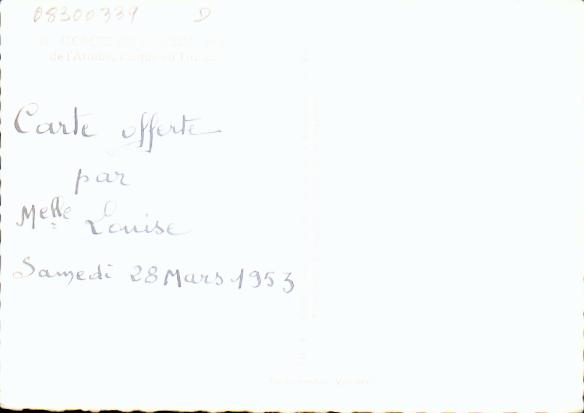 08300339 D
Carte offerte
par
Melle Louise
Samedi 28 Mars 1953